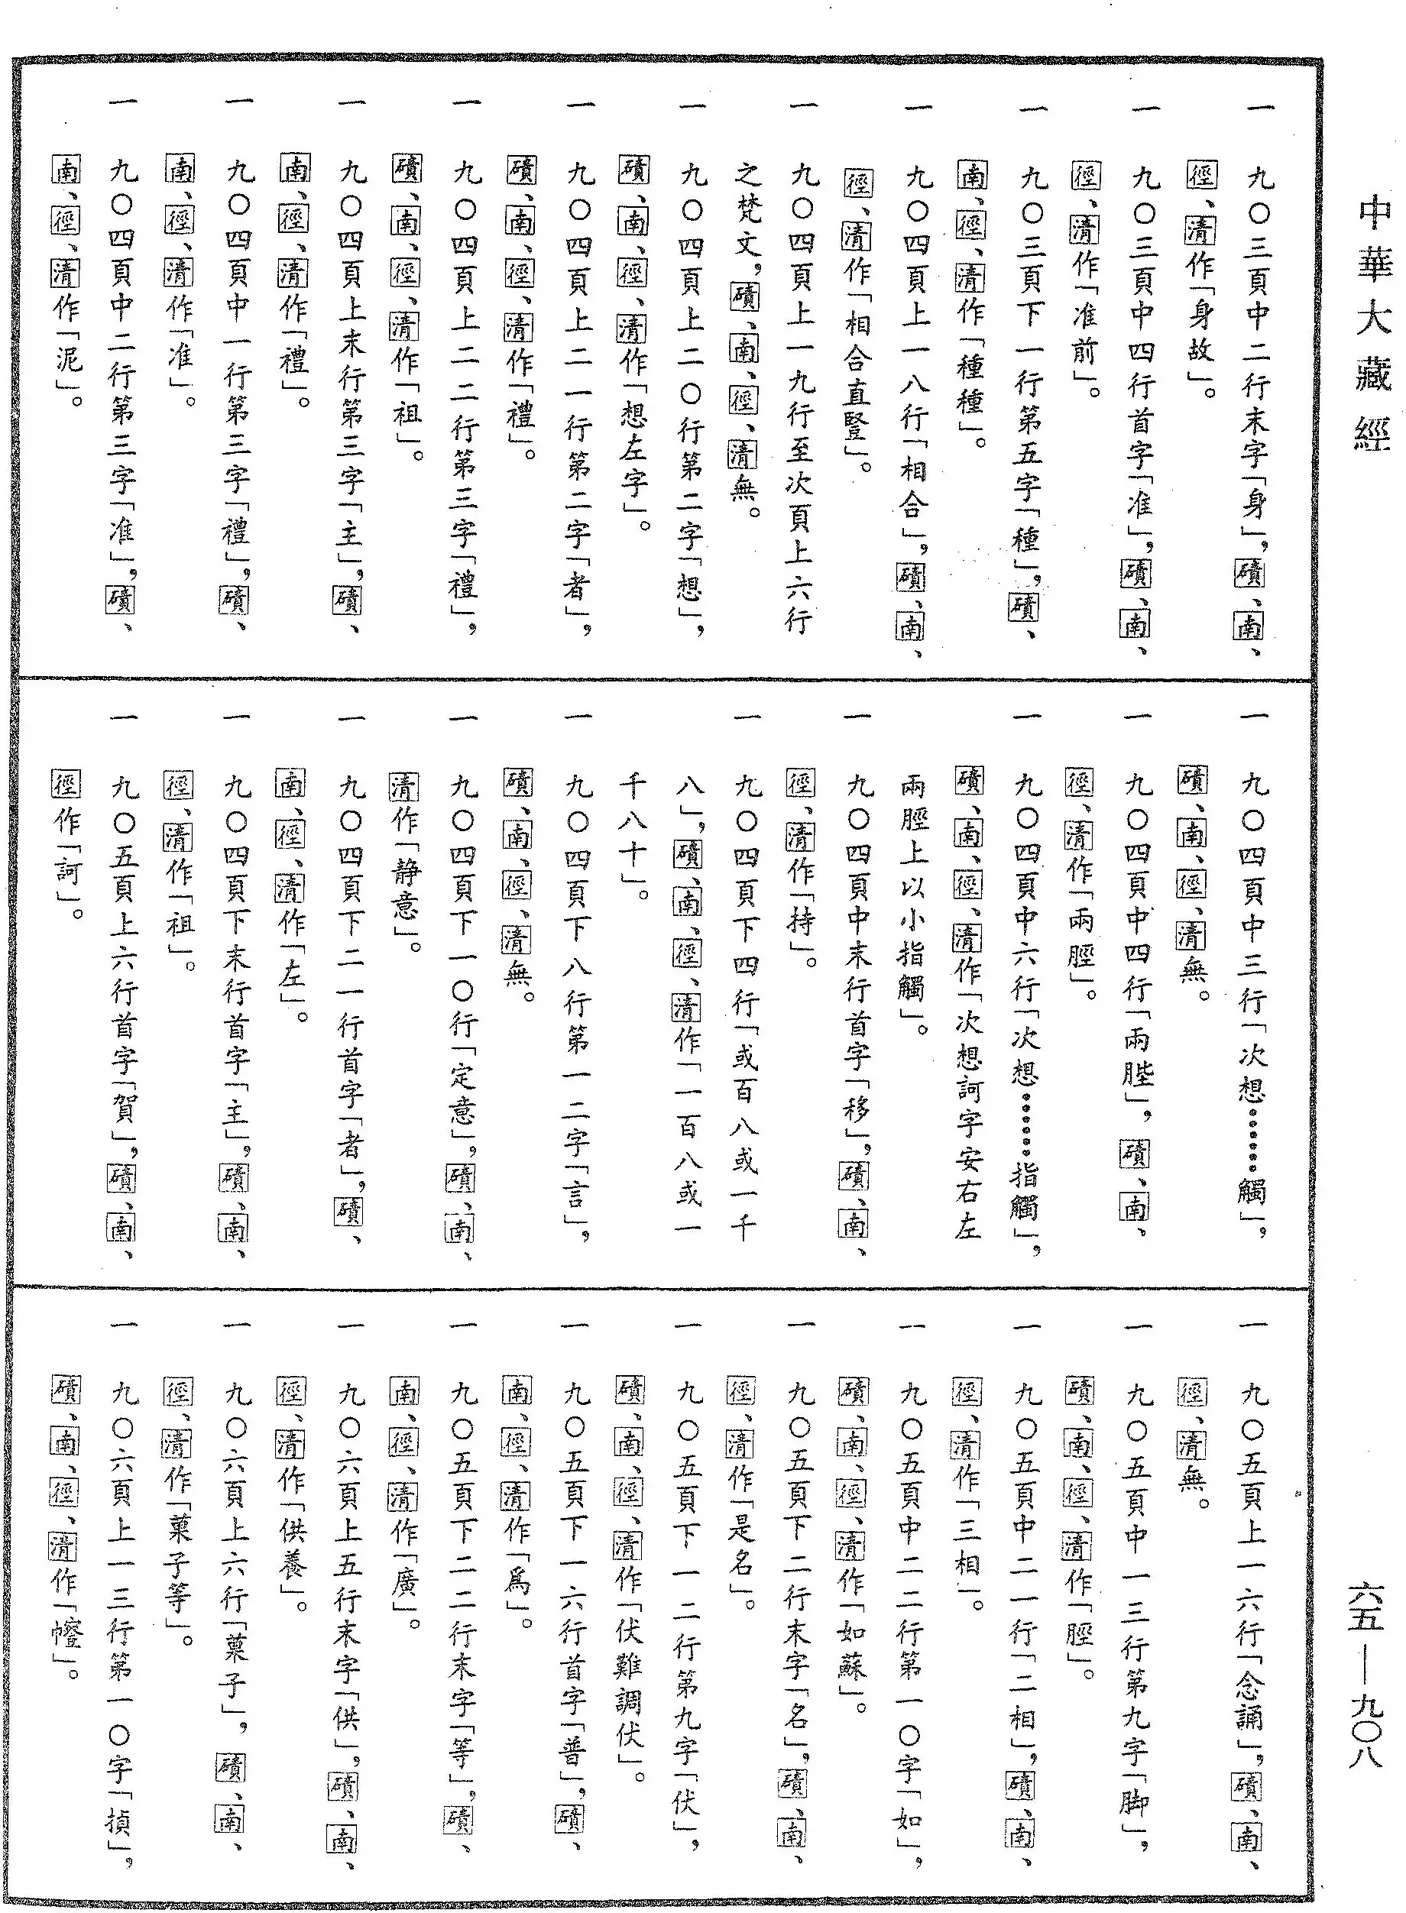 中華大藏經
一 九〇三頁中二行末字「身」，磧、南、
徑、清作「身故」。
一 九〇三頁中四行首字「准」，磧、南、
徑、清作「准前」。
一 九〇三頁下一行第五字「種」，磧、
南、徑、清作「種種」。
一 九〇四頁上一八行「相合」，磧、南、
徑、清作「相合直豎」。
一 九〇四頁上一九行至次頁上六行
之梵文，磧、南、徑、清無。
一 九〇四頁上二〇行第二字「想」，
磧、南、徑、清作「想左字」。
一 九〇四頁上二一行第二字「者」，
磧、南、徑、清作「禮」。
一 九〇四頁上二二行第三字「禮」，
磧、南、徑、清作「祖」。
一 九〇四頁上末行第三字「主」，磧、
南、徑、清作「禮」。
一 九〇四頁中一行第三字「禮」，磧、
南、徑、清作「准」。
一 九〇四頁中二行第三字「准」，磧、
南、徑、清作「泥」。
一 九〇四頁中三行「次想……觸」，
磧、南、徑、清無。
一 九〇四頁中四行「兩䏶」，磧、南、
徑、清作「兩脛」。
一 九〇四頁中六行「次想……指觸」，
磧、南、徑、清作「次想訶字安右左
兩脛上以小指觸」。
一 九〇四頁中末行首字「移」，磧、南、
徑、清作「持」。
一 九〇四頁下四行「或百八或一千
八」，磧、南、徑、清作「一百八或一
千八十」。
一 九〇四頁下八行第一二字「言」，
磧、南、徑、清無。
一 九〇四頁下一〇行「定意」，磧、南、
清作「静意」。
一 九〇四頁下二一行首字「者」，磧、
南、徑、清作「左」。
一 九〇四頁下末行首字「主」，磧、南、
徑、清作「祖」。
一 九〇五頁上六行首字「賀」，磧、南、
徑作「訶」。
一 九〇五頁上一六行「念誦」，磧、南、
徑、清無。
一 九〇五頁中一三行第九字「脚」，
磧、南、徑、清作「脛」。
一 九〇五頁中二一行「二相」，磧、南、
徑、清作「三相」。
一 九〇五頁中二二行第一〇字「如」，
磧、南、徑、清作「如蘇」。
一 九〇五頁下二行末字「名」，磧、南、
徑、清作「是名」。
一 九〇五頁下一二行第九字「伏」，
磧、南、徑、清作「伏難調伏」。
一 九〇五頁下一六行首字「普」，磧、
南、徑、清作「爲」。
一 九〇五頁下二二行末字「等」，磧、
南、徑、清作「廣」。
一 九〇六頁上五行末字「供」，磧、南、
徑、清作「供養」。
一 九〇六頁上六行「菓子」，磧、南、
徑、清作「菓子等」。
一 九〇六頁上一三行第一〇字「揁」，
磧、南、徑、清作「㡧」。
六五—九〇八